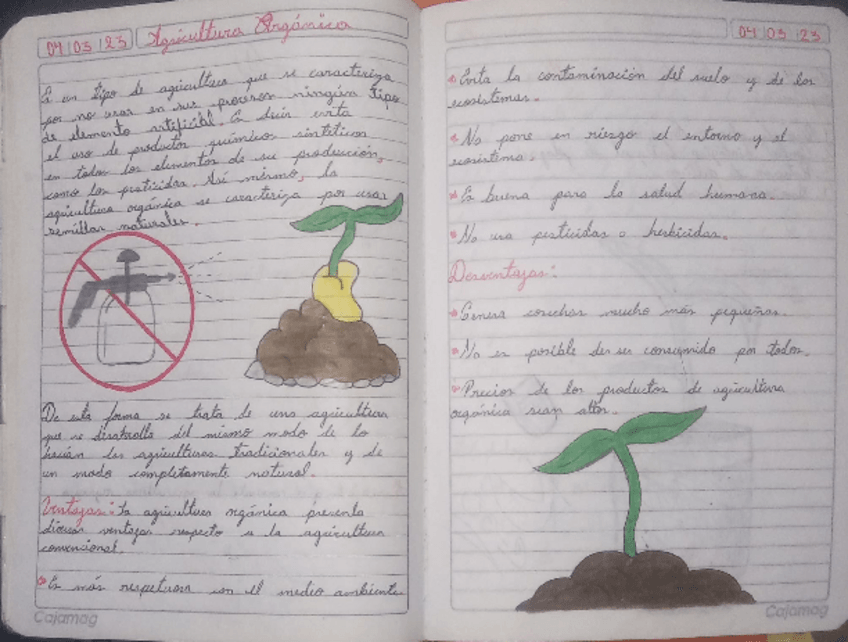 04 03 23
Agricultura Orgánica
Es un tipo de agricultura que se caracteriza
por no usar en sus procesos ningún tipo
de elemento artificial. Es decir evita
el uso de productos químicos sintéticos
en todos los elementos de su producción,
como los pesticidas. Así mismo, la
agricultura orgánica se caracteriza por usar
semillas naturales.
De esta forma se trata de una agricultura
que se desarrolla del mismo modo de lo
hacían las agriculturas tradicionales y de
un modo completamente natural.
Ventajas: La agricultura orgánica presenta
diversas ventajas respecto a la agricultura
convencional.
Es más respetuosa con el medio ambiente
Cajamag
04 03 23
Evita la contaminación del suelo y de los
ecosistemas.
No pone en riesgo el entorno y el
ecosistema.
Es buena para la salud humana.
No usa pesticidas o herbicidas.
Desventajas:
Genera cosechas mucho más pequeñas
No es posible der ser consumido por todos.
Precios de los productos de agricultura
orgánica sean altos.
Cajamag